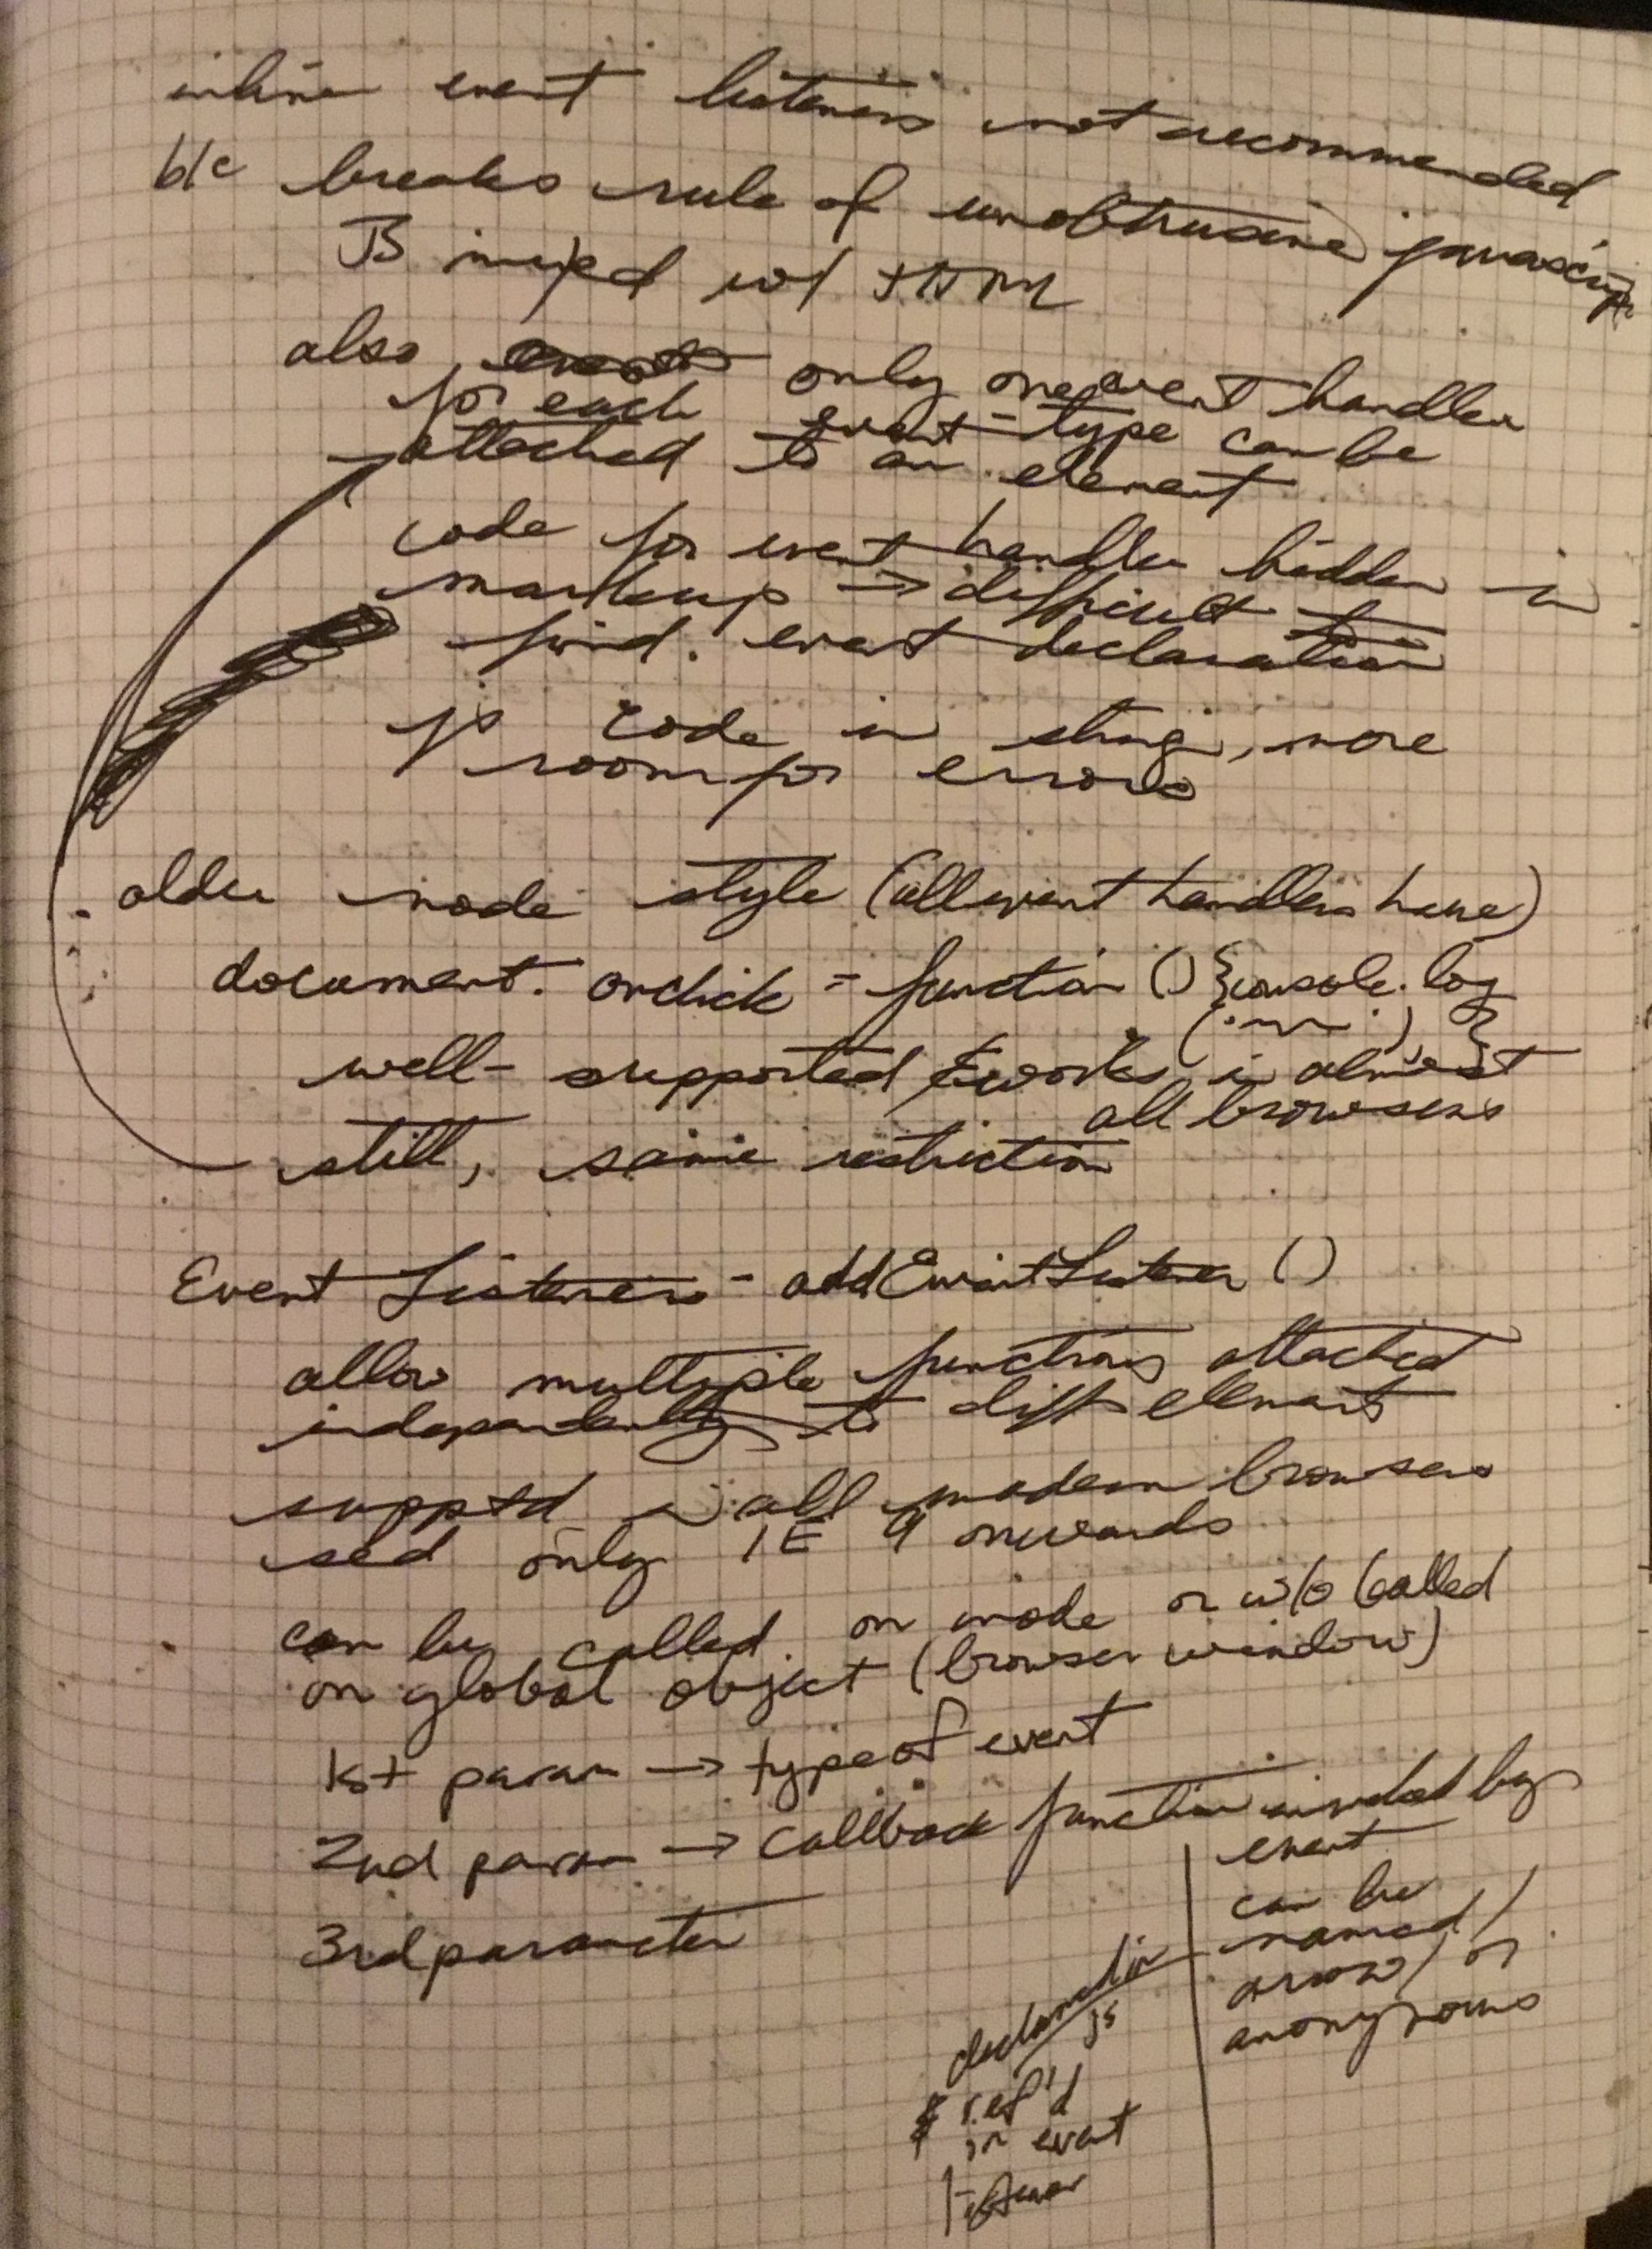 inline event listeners not recommended
b/c breaks rule of unobtrusive javascript
JS mixed w/ HTML
also, only one event handler
for each event-type can be
attached to an element
code for event handler hidden in
markup → difficult to
find. event declaration
js code in string, more
room for errors
older node style (all event handlers have)
document.onclick = function () {console.log
(...) }
well-supported & works in almost
all browsers
still, same restriction
Event Listeners - addEventListener ()
allow multiple functions attached
independently to diff elements
suppt'd in all modern browsers
only IE 9 onwards
can be called on node or w/o (called
on global object (browser window)
1st param → type of event
2nd param → callback function invoked by
event
can be
named /
arrow / or
anonymous
3rd parameter
js
& ref'd
in event
listener